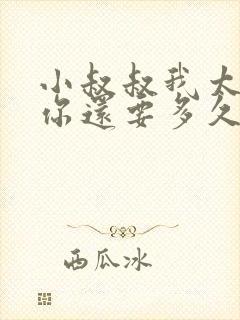 小叔叔我太
你還要多久
西瓜冰